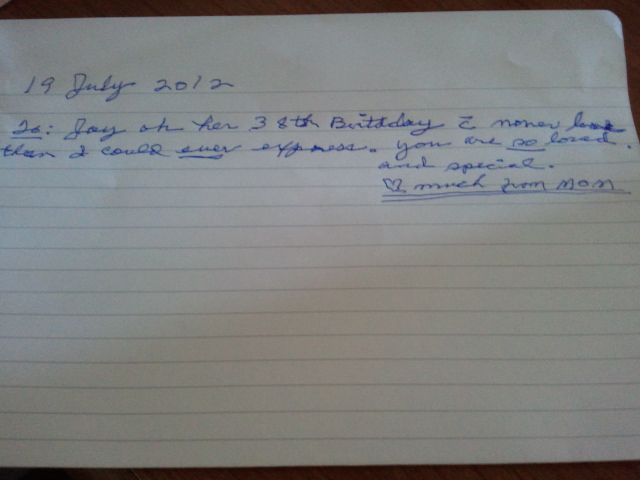 19 July 2012
To: Joy on her 38th Birthday c̄
than I could ever express. you are so loved.
and special.
♡ much from MOM